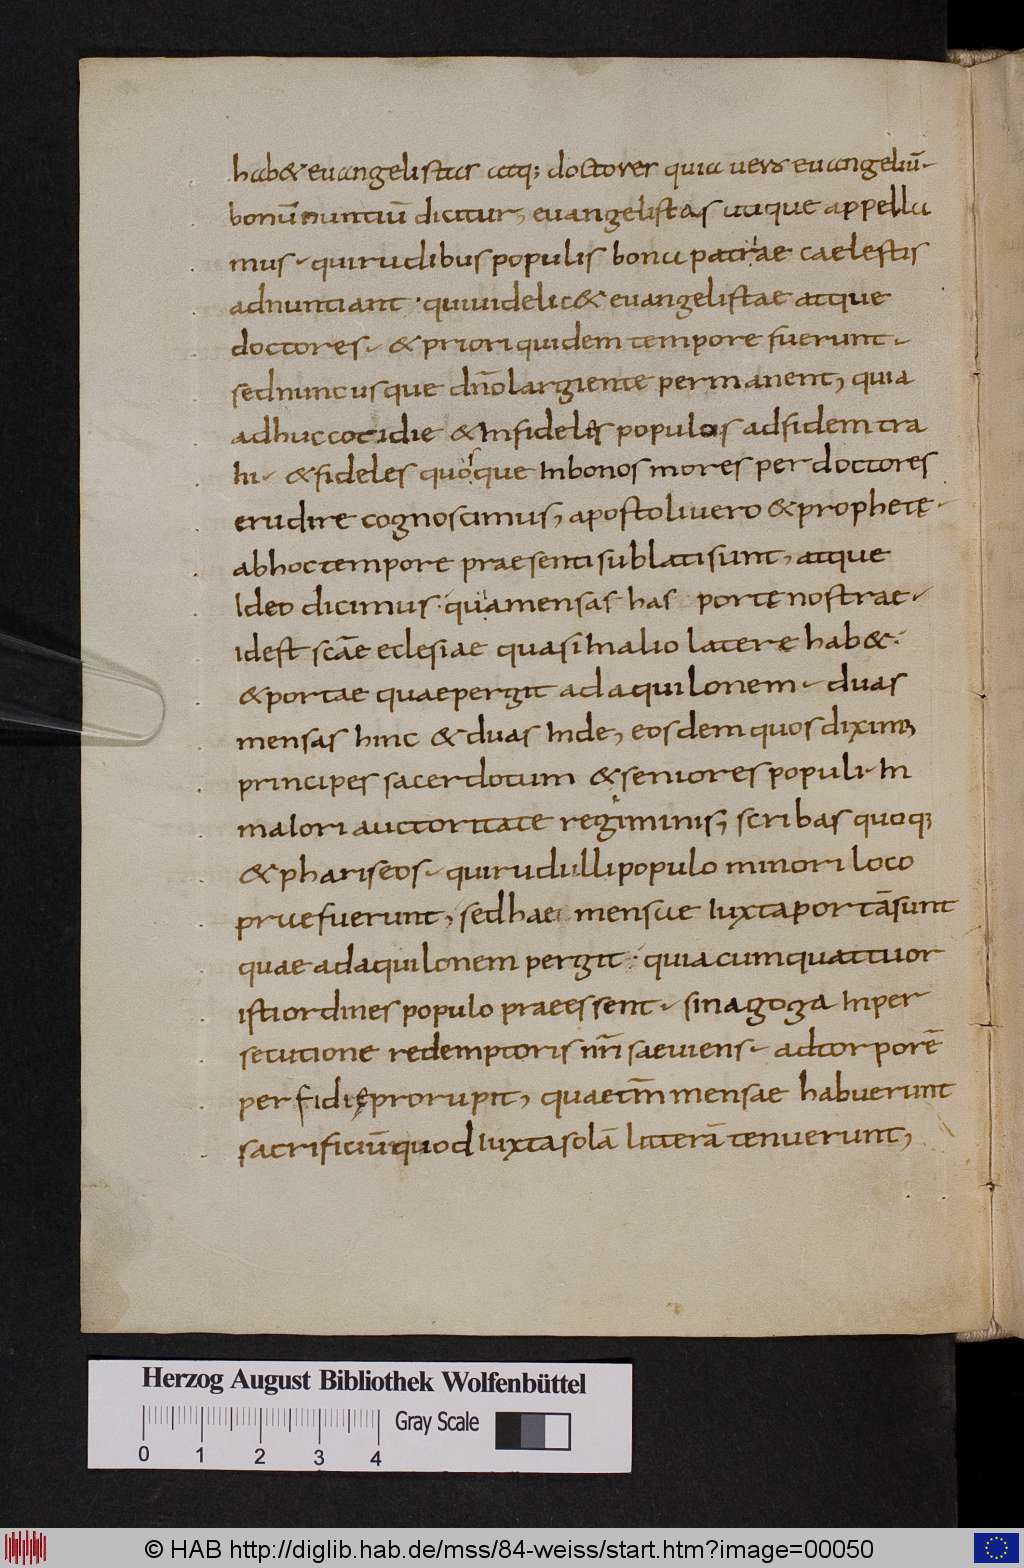 hab& euangelistas atq; doctores quia uero euangeliū.
bonū nuntiū dicitur, euangelistas utique appella
mus. qui rudibus populis bona patriae caelestis
adnuntiant. qui uidelic& euangelistae atque
doctores. & priori quidem tempore fuerunt.
sed nunc usque dn̄o largiente permanent, quia
adhuc cotidie & Infideles populos ad fidem tra
hi. & fideles quosque In bonos mores per doctores
erudire cognoscimus, apostoli uero & prophetę.
ab hoc tempore praesenti sublati sunt, atque
Ideo dicimus. quia mensas has portę nostrae.
idest scāe eclesiae quasi In alio latere hab&.
& portae quae pergit ad aquilonem. duas
mensas hinc & duas Inde, eosdem quos diximus
principes sacerdotum & seniores populi. In
maiori auctoritate regiminis, scribas quoq;
& phariseos. qui rudi illi populo minori loco
praefuerunt, sed hae mensae Iuxta portā sunt
quae ad aquilonem pergit. quia cum quattuor
isti ordines populo praeessent. sinagoga In per
secutione redemptoris nr̄i saeuiens. ad torporē
perfidię prorupit, quae tm̄ mensae habuerunt
sacrificiū quod Iuxta solā litterā tenuerunt,
Herzog August Bibliothek Wolfenbüttel
Gray Scale
0 1 2 3 4
© HAB http://diglib.hab.de/mss/84-weiss/start.htm?image=00050